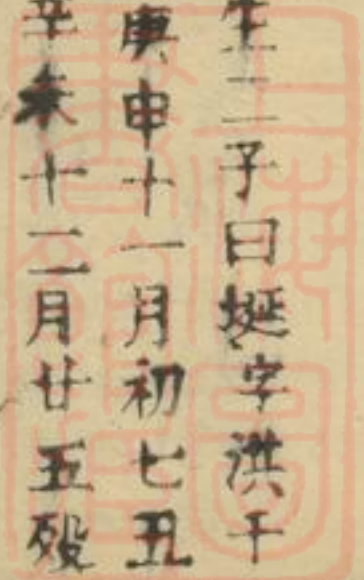 生二子曰埏字洪干
庚申十一月初七丑
辛亥十二月廿五殁